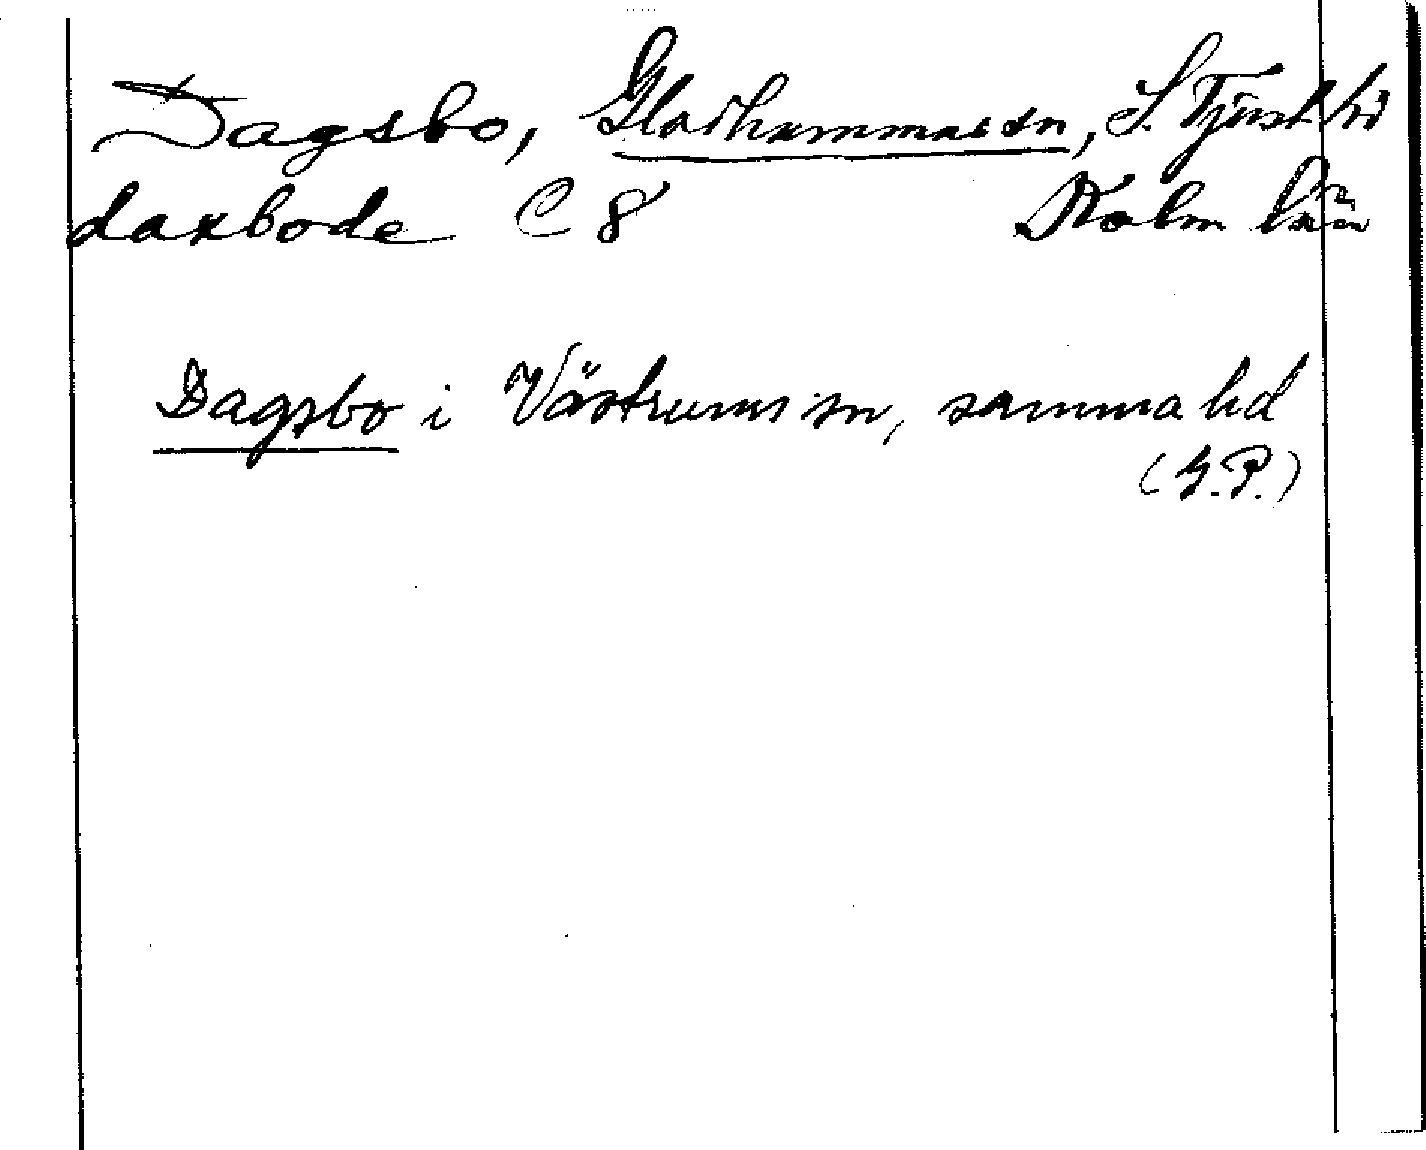 Dagsbo, Gladhammars sn, S. Tjust hd
daxbode C 8 Kalm län
Dagsbo i Västrums sn, samma hd
(G.P.)